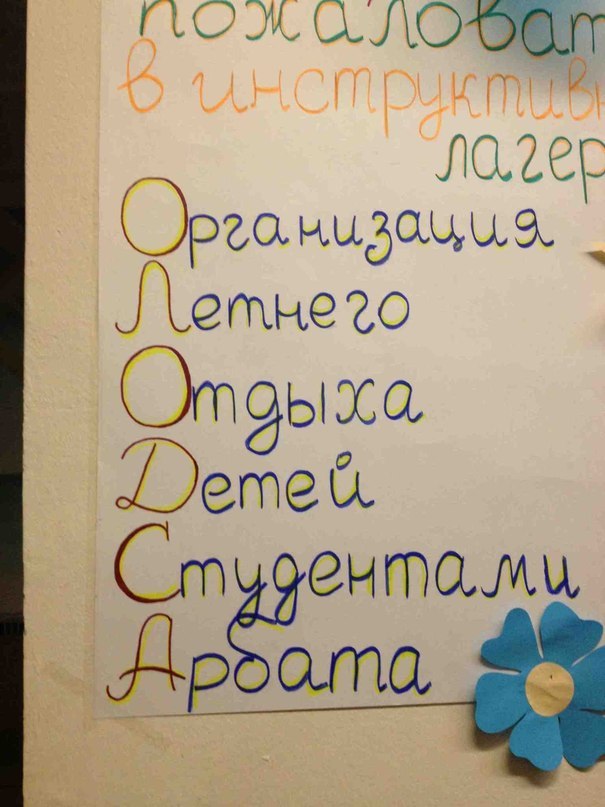 пожаловат
в инструктивн
лагер
Организация
Летнего
Отдыха
Детей
Студентами
Арбата